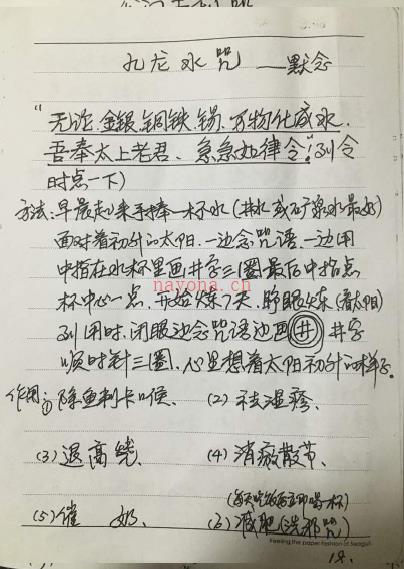 九龙水咒 —— 默念
“无论金银铜铁锡、万物化成水、
吾奉太上老君、急急如律令!”(到令
时点一下)
方法:早晨起来手捧一杯水(井水或矿泉水最好)
面对着初升的太阳、一边念咒语、一边用
中指在水杯里画井字三圈最后中指点
杯中心一点、开始炼7天、睁眼炼(看太阳)
到用时、闭眼边念咒语边画井 井字
顺时针三圈、心里想着太阳初升的样子。
作用:①除鱼刺卡喉、 (2)祛湿疹、
(3)退高烧、 (4)消散节、
(每天吃饭前立即喝一杯)
(5)催奶、 (6)减肥(洗邪咒)
Feeling the paper Fashion of Seagull
nayona.cn